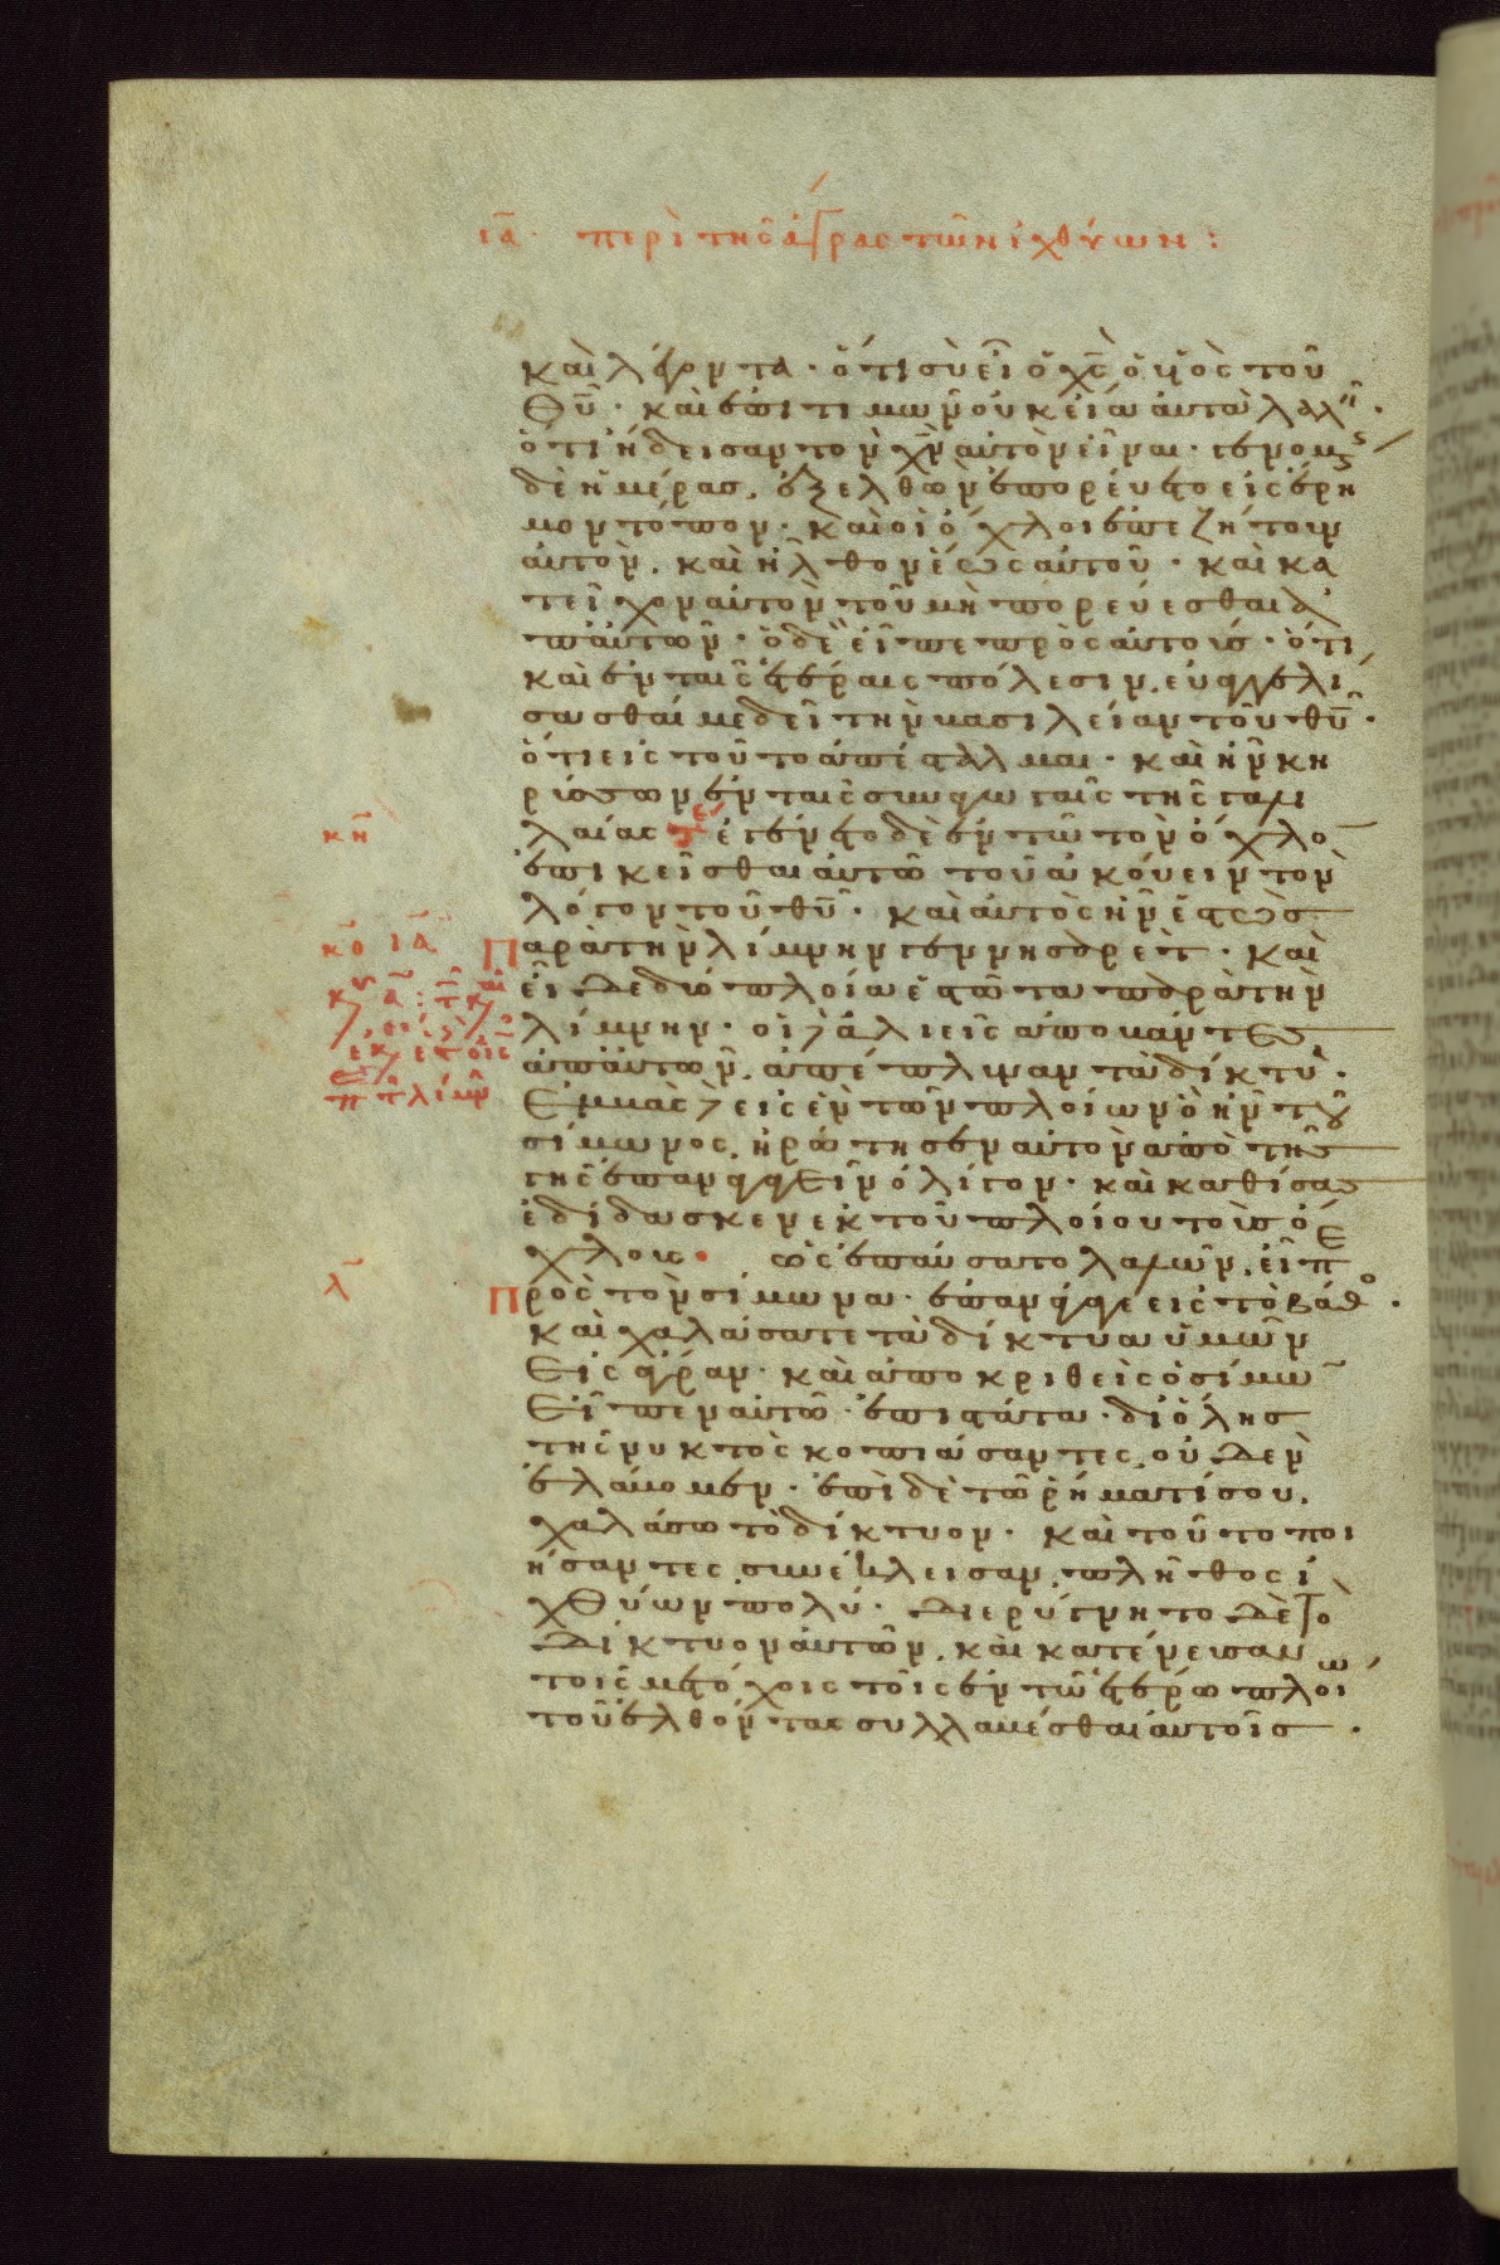 ια· περὶ τῆς ἄγρας τῶν ἰχθύων:
καὶ λέγοντα· ὅτι σὺ εἶ ὁ χ̅ς̅ ὁ υἱὸς τοῦ
θ̅υ̅· καὶ ἐπιτιμῶν οὐκ εἴα αὐτὰ λαλεῖ·
ὅτι ἤδεισαν τὸν χ̅ν̅ αὐτὸν εἶναι· γενομς
δὲ ἡμέρας, ἐξελθὼν ἐπορεύετο εἰς ἔρη
μον τόπον· καὶ οἱ ὄχλοι ἐπεζήτουν
αὐτὸν, καὶ ἦλθον ἕως αὐτοῦ· καὶ κα
τεῖχον αὐτὸν τοῦ μὴ πορεύεσθαι ἀ
π' αὐτῶν· ὁ δὲ εἶπε πρὸς αὐτούς· ὅτι
καὶ ἐν ταῖς ἑτέραις πόλεσιν, εὐαγγελί
σασθαί με δεῖ τὴν βασιλείαν τοῦ θ̅υ̅·
ὅτι εἰς τοῦτο ἀπέσταλμαι· καὶ ἦν κη
ρύσσων ἐν ταῖς συναγωγαῖς τῆς γαλι
κη λαίας τε ἐγένετο δὲ ἐν τῶ τὸν ὄχλο
ἐπικεῖσθαι αὐτῶ τοῦ ἀκούειν τὸν
λόγον τοῦ θ̅υ̅· καὶ αὐτὸς ἦν ἑστὼς
κθ ια παρὰ τὴν λίμνην γεννησαρὲτ· καὶ
εἶδε δύο πλοῖα ἑστῶτα παρὰ τὴν
λίμνην· οἱ δὲ ἁλιεῖς ἀποβάντες
ἀπ' αὐτῶν, ἀπέπλυναν τὰ δίκτυ·
Ἐμβὰς δὲ εἰς ἓν τῶν πλοίων ὃ ἦν τοῦ
σίμωνος, ἠρώτησεν αὐτὸν ἀπὸ τῆς
γῆς ἐπαναγαγεῖν ὀλίγον· καὶ καθίσας
ἐδίδασκεν ἐκ τοῦ πλοίου τοὺς ὄ
χλους· ὡς ἐπαύσατο λαλῶν, εἶπε
λ πρὸς τὸν σίμωνα· ἐπανάγαγε εἰς τὸ βάθο·
καὶ χαλάσατε τὰ δίκτυα ὑμῶν
Εἰς ἄγραν· καὶ ἀποκριθεὶς ὁ σίμω
Εἶπεν αὐτῶ· ἐπιστάτα· δι' ὅλης
τῆς νυκτὸς κοπιάσαντες, οὐδὲν
ἐλάβομεν· ἐπὶ δὲ τῶ ῥήματί σου,
χαλάσω τὸ δίκτυον· καὶ τοῦτο ποι
ήσαντες, συνέκλεισαν, πλῆθος ἰ
χθύων πολύ· Διερύγνητο δὲ τὸ
Δίκτυον αὐτῶν, καὶ κατένευσαν
τοῖς μετόχοις τοῖς ἐν τῶ ἑτέρω πλοίω
τοῦ ἐλθόντας συλλαβέσθαι αὐτοῖς·